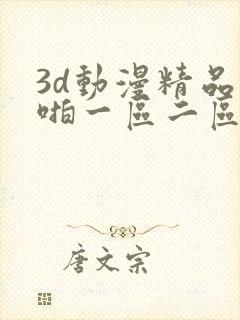 3d動漫精品
啪一區二區
唐文宗